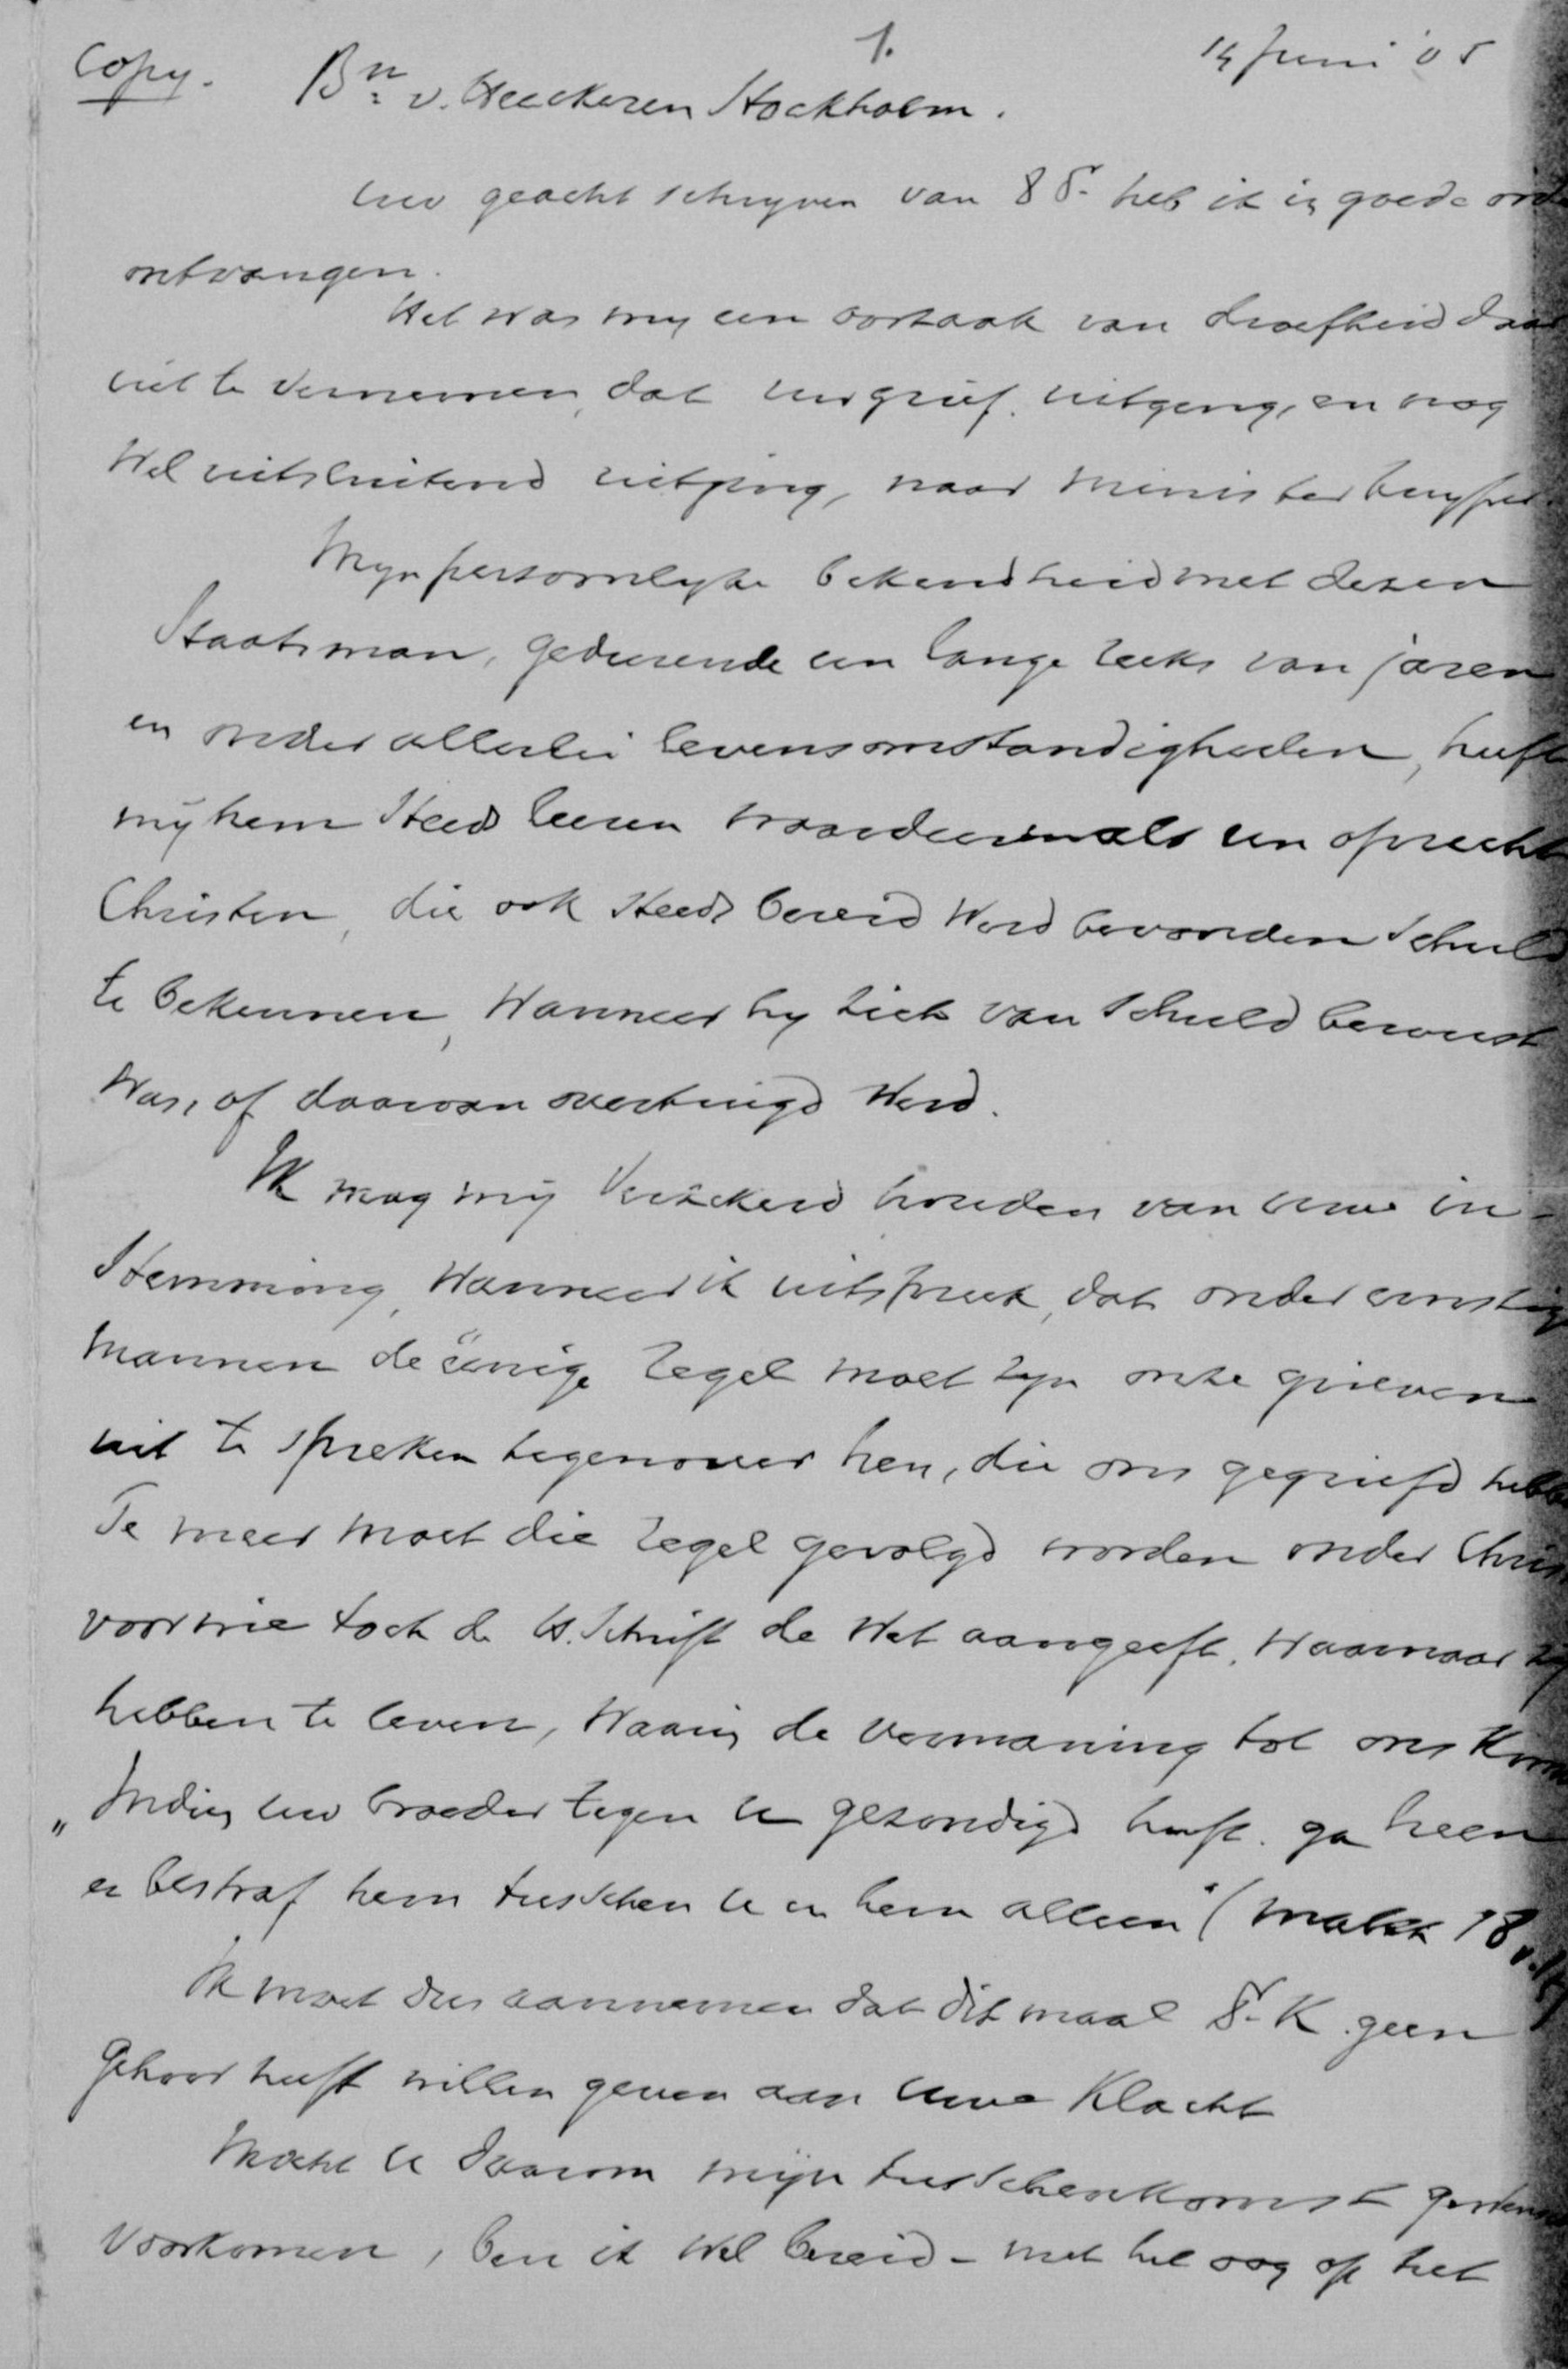 1.
Copy. 14 Juni '05
Bn v. Heeckeren Stockholm.
Uw geacht schrijven van 8 dr heb ik in goede orde
ontvangen.
Het was mij een oorzaak van droefheid daar
uit te vernemen, dat uw grief uitging, en nog
wel uitsluitend uitging, naar Minister Kuyper.
Mijn persoonlijke bekendheid met dezen
Staatsman, gedurende een lange reeks van jaren
en onder allerlei levensomstandigheden, heeft
mij hem steeds leeren waardeeren als een oprecht
Christen, die ook steeds bereid werd bevonden schuld
te bekennen, wanneer hij zich van schuld bewust
was, of daarvan overtuigd werd.
Ik mag mij verzekerd houden van uwe in-
stemming, wanneer ik uitspreek, dat onder ernstige
mannen de eenige regel moet zijn onze grieven
uit te spreken tegenover hen, die ons gegriefd hebben
Te meer moet die regel gevolgd worden onder Chris
voor wie toch de H. Schrift de Wet aangeeft, waarnaar zij
hebben te leven, waarin de vermaning tot ons komt
„Indien uw broeder tegen u gezondigd heeft. ga heen
en bestraf hem tusschen u en hem alleen" (Matth 18 v. 15)
Ik moet dus aannemen dat ditmaal Dr. K. geen
gehoor heeft willen geven aan uwe klacht
Mocht U daarom mijn tusschenkomst
voorkomen, ben ik wel bereid - met het oog op het